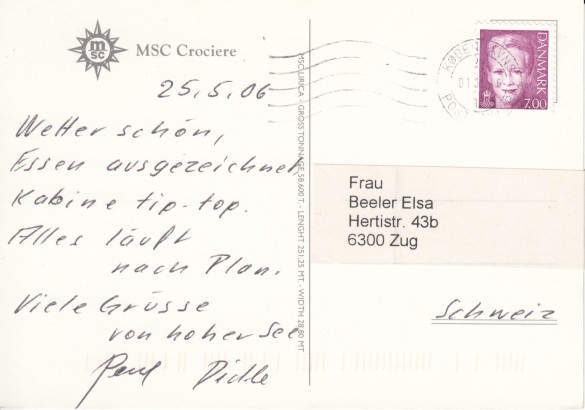 MSC Crociere
25.5.06
Wetter schön,
Essen ausgezeichnet,
Kabine tip-top.
Alles läuft
nach Plan.
Viele Grüsse
von hoher See
MSC LIRICA - GROSS TONNAGE 58,600 T. - LENGHT 251,25 MT. - WIDTH 28,80 MT
DANMARK
7.00
Frau
Beeler Elsa
Hertistr. 43b
6300 Zug
Schweiz